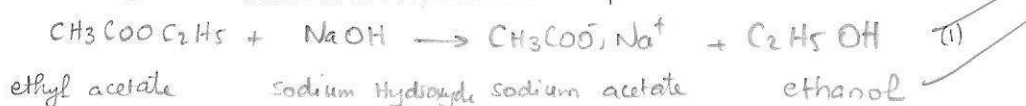 CH3COOC2H5 + NaOH → CH3COO⁻, Na⁺ + C2H5OH (1)
ethyl acetate sodium Hydroxyde sodium acetate ethanol